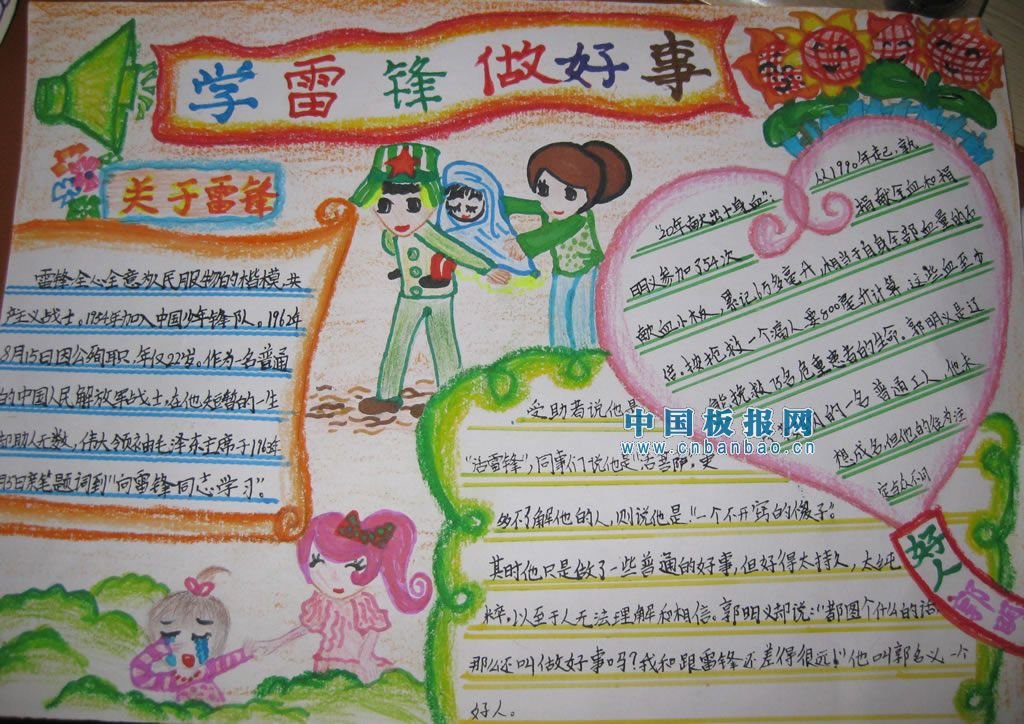 学雷锋做好事
关于雷锋
雷锋全心全意为人民服务的楷模,共
产主义战士。1954年加入中国少年先锋队。1962年
8月15日因公殉职,年仅22岁。作为一名普通
的中国人民解放军战士,在他短暂的一生
助人无数,伟大领袖毛泽东主席于1963年
月5日亲笔题词到"向雷锋同志学习"。
从1990年起,郭
"20年献出十身血":
捐献全血和捐
明义参加了54次
献血小板,累记6万多毫升,相当于自身全部血量的
倍。按抢救一个病人要800毫升计算,这些血至少
能挽救75名危重患者的生命。郭明义是辽
的一名普通工人,他未
想成名,但他的
受助者说他是
中国板报网
www.cnbanbao.cn
"活雷锋",同事们说他是"活菩萨",更
多不了解他的人,则说他是:"一个不开窍的傻子"。
其时他只是做了一些普通的好事,但好得太持久,太纯
粹,以至于人无法理解和相信。郭明义却说:"都图个什么的话
那么还叫做好事吗?我和跟雷锋还差得很远!"他叫郭名义一个
好人。
好人